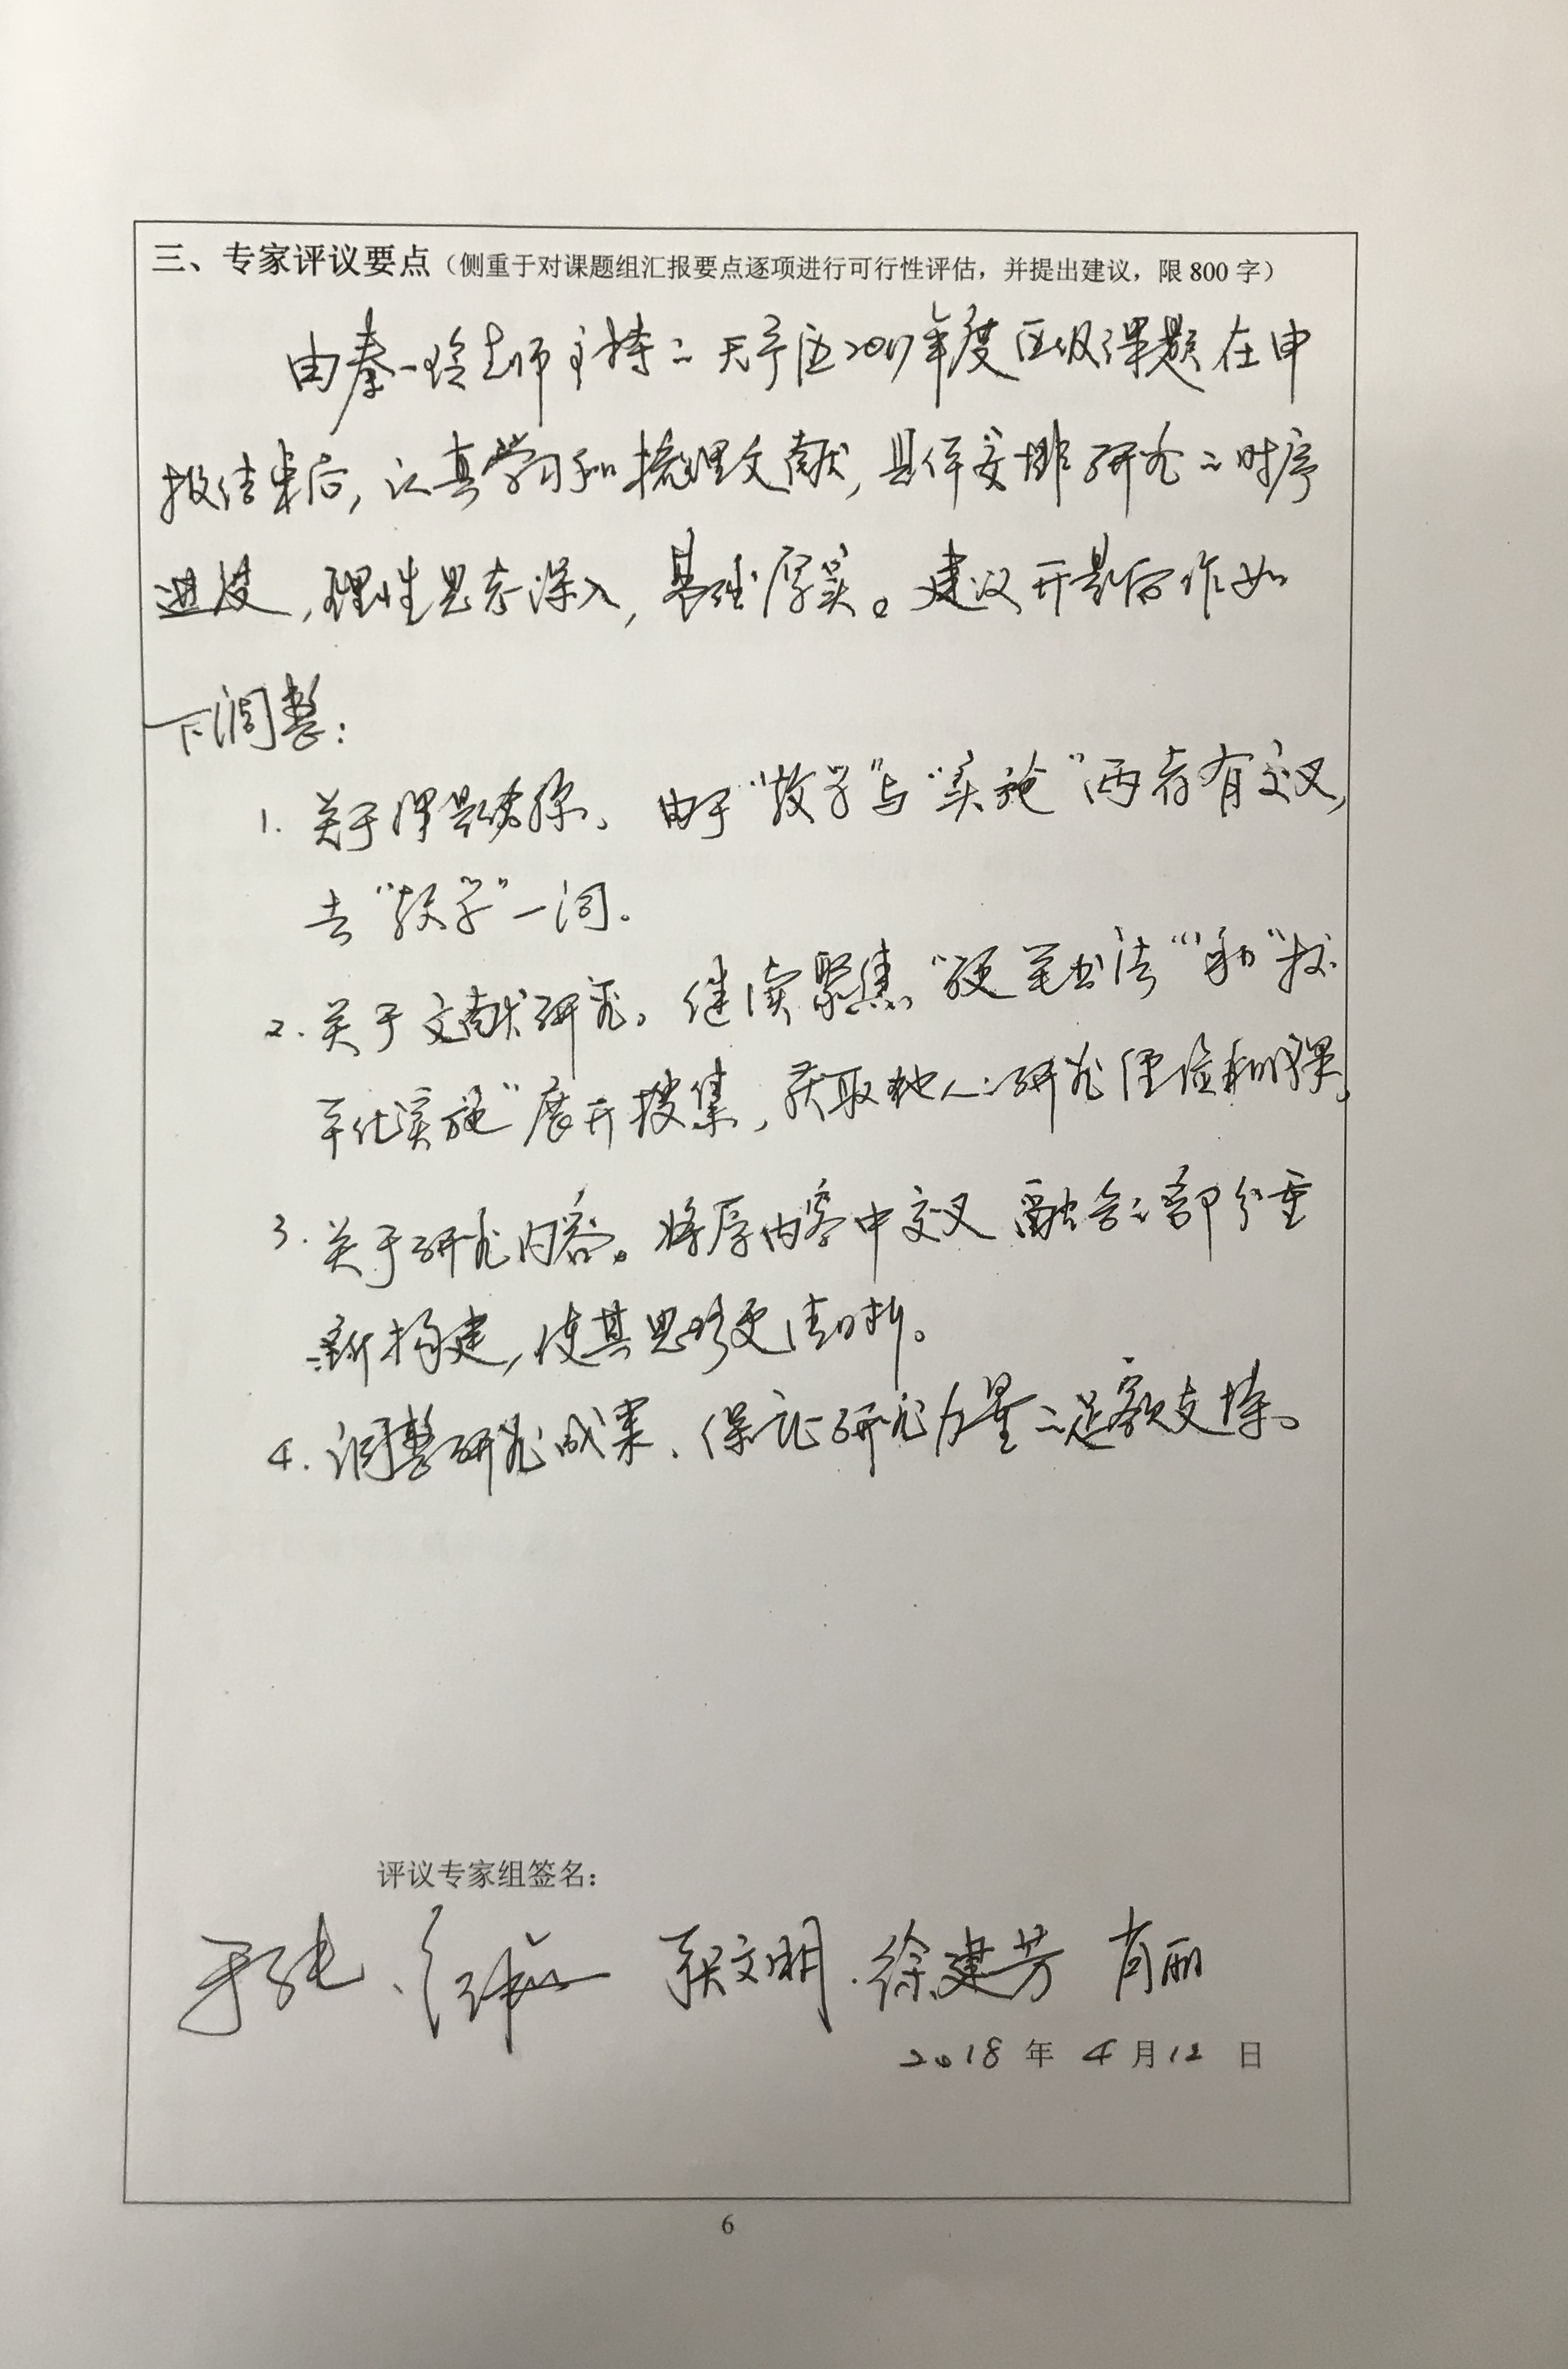 三、专家评议要点（侧重于对课题组汇报要点逐项进行可行性评估，并提出建议，限800字）
由秦一玲老师主持的天宁区2017年度区级课题在申
报结束后，认真学习和梳理文献，具体安排研究的时序
进度，理性思考深入，基础厚实。建议开题后作如
下调整：
1. 关于课题名称。由于“教学”与“实施”两者有交叉，
去“教学”一词。
2. 关于文献研究。继续聚焦“硬笔书法”“和”校
本化实施”展开搜集，获取他人的研究价值和成果。
3. 关于研究内容。将原内容中交叉融合的部分重
新构建，使其思路更清晰。
4. 调整研究成果、保证研究力量的足额支持。
评议专家组签名：
文明 . 徐建芳 肖丽
2018 年 4 月 12 日
6